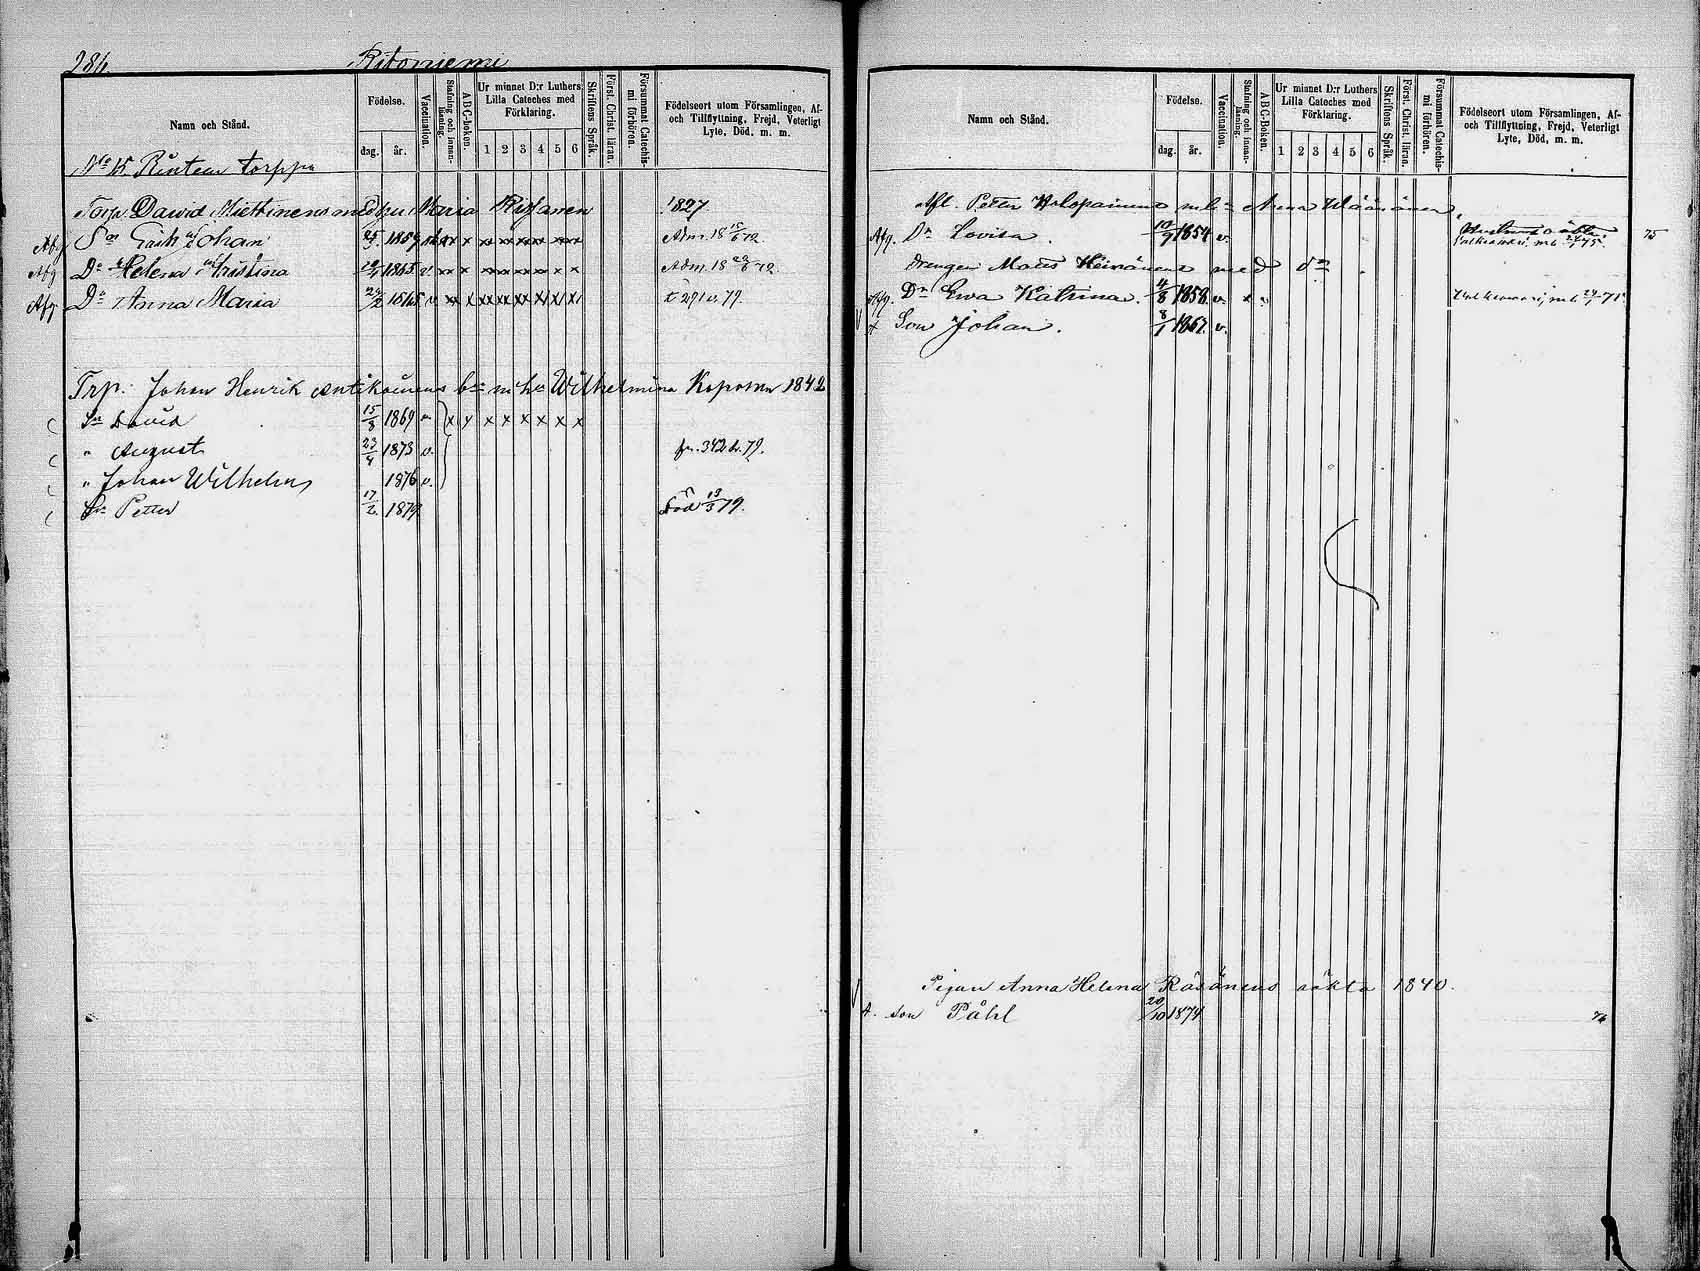 284. Ritoniemi
Namn och Stånd.
Födelse.
dag. år.
Vaccination.
Stafning och innanläsning.
ABC-boken.
Ur minnet D:r Luthers Lilla Cateches med Förklaring.
1 2 3 4 5 6
Skriftens Språk.
Först. Christ. läran.
Försummat Catechismi förhören.
Födelseort utom Församlingen, Af- och Tillflyttning, Frejd, Veterligt Lyte, Död, m. m.
No 15 torppa
Torp. David Miettinens med Maria 1827
Afg Sn Johan 25 1859 x x x x x x x x Adm. 18 15/6 72.
Afg Dr Helena Kristina 1865 v. x x x x x x x x Adm. 18 23/6 72
Afg Dr Anna Maria 24/2 1865 v x x x x x x x x t 291 v. 79.
Trp. Johan Henrik Antikainens bn m h Wilhelmina Koponen 1842
Sn David 15/8 1869 v x x x x x x x x
" August 23/4 1873 v. fr. 342 b. 79.
" Johan Wilhelm 1876 v.
Sn Petter 17/2 1879 Död 13/3 79.
Namn och Stånd.
Födelse.
dag. år.
Vaccination.
Stafning och innanläsning.
ABC-Boken.
Ur minnet D:r Luthers Lilla Cateches med Förklaring.
1 2 3 4 5 6
Skriftens Språk.
Först. Christ. läran.
Försummat Catechismi förhören.
Födelseort utom Församlingen, Af- och Tillflyttning, Frejd, Veterligt Lyte, Död, m. m.
Afl. Petter Holopainens Anna Wäänänen
Afg. Dr Lovisa. 1854 v. 75
Drengen Mats Heinänens med dn
Afg. Dr Ewa Katrina. 4/8 1858. v. x v
Son Johan. 8/1 1867. v.
Pigan Anna Helena Räsänens oäkta 1840.
A. son Påhl 20/10 1874 76